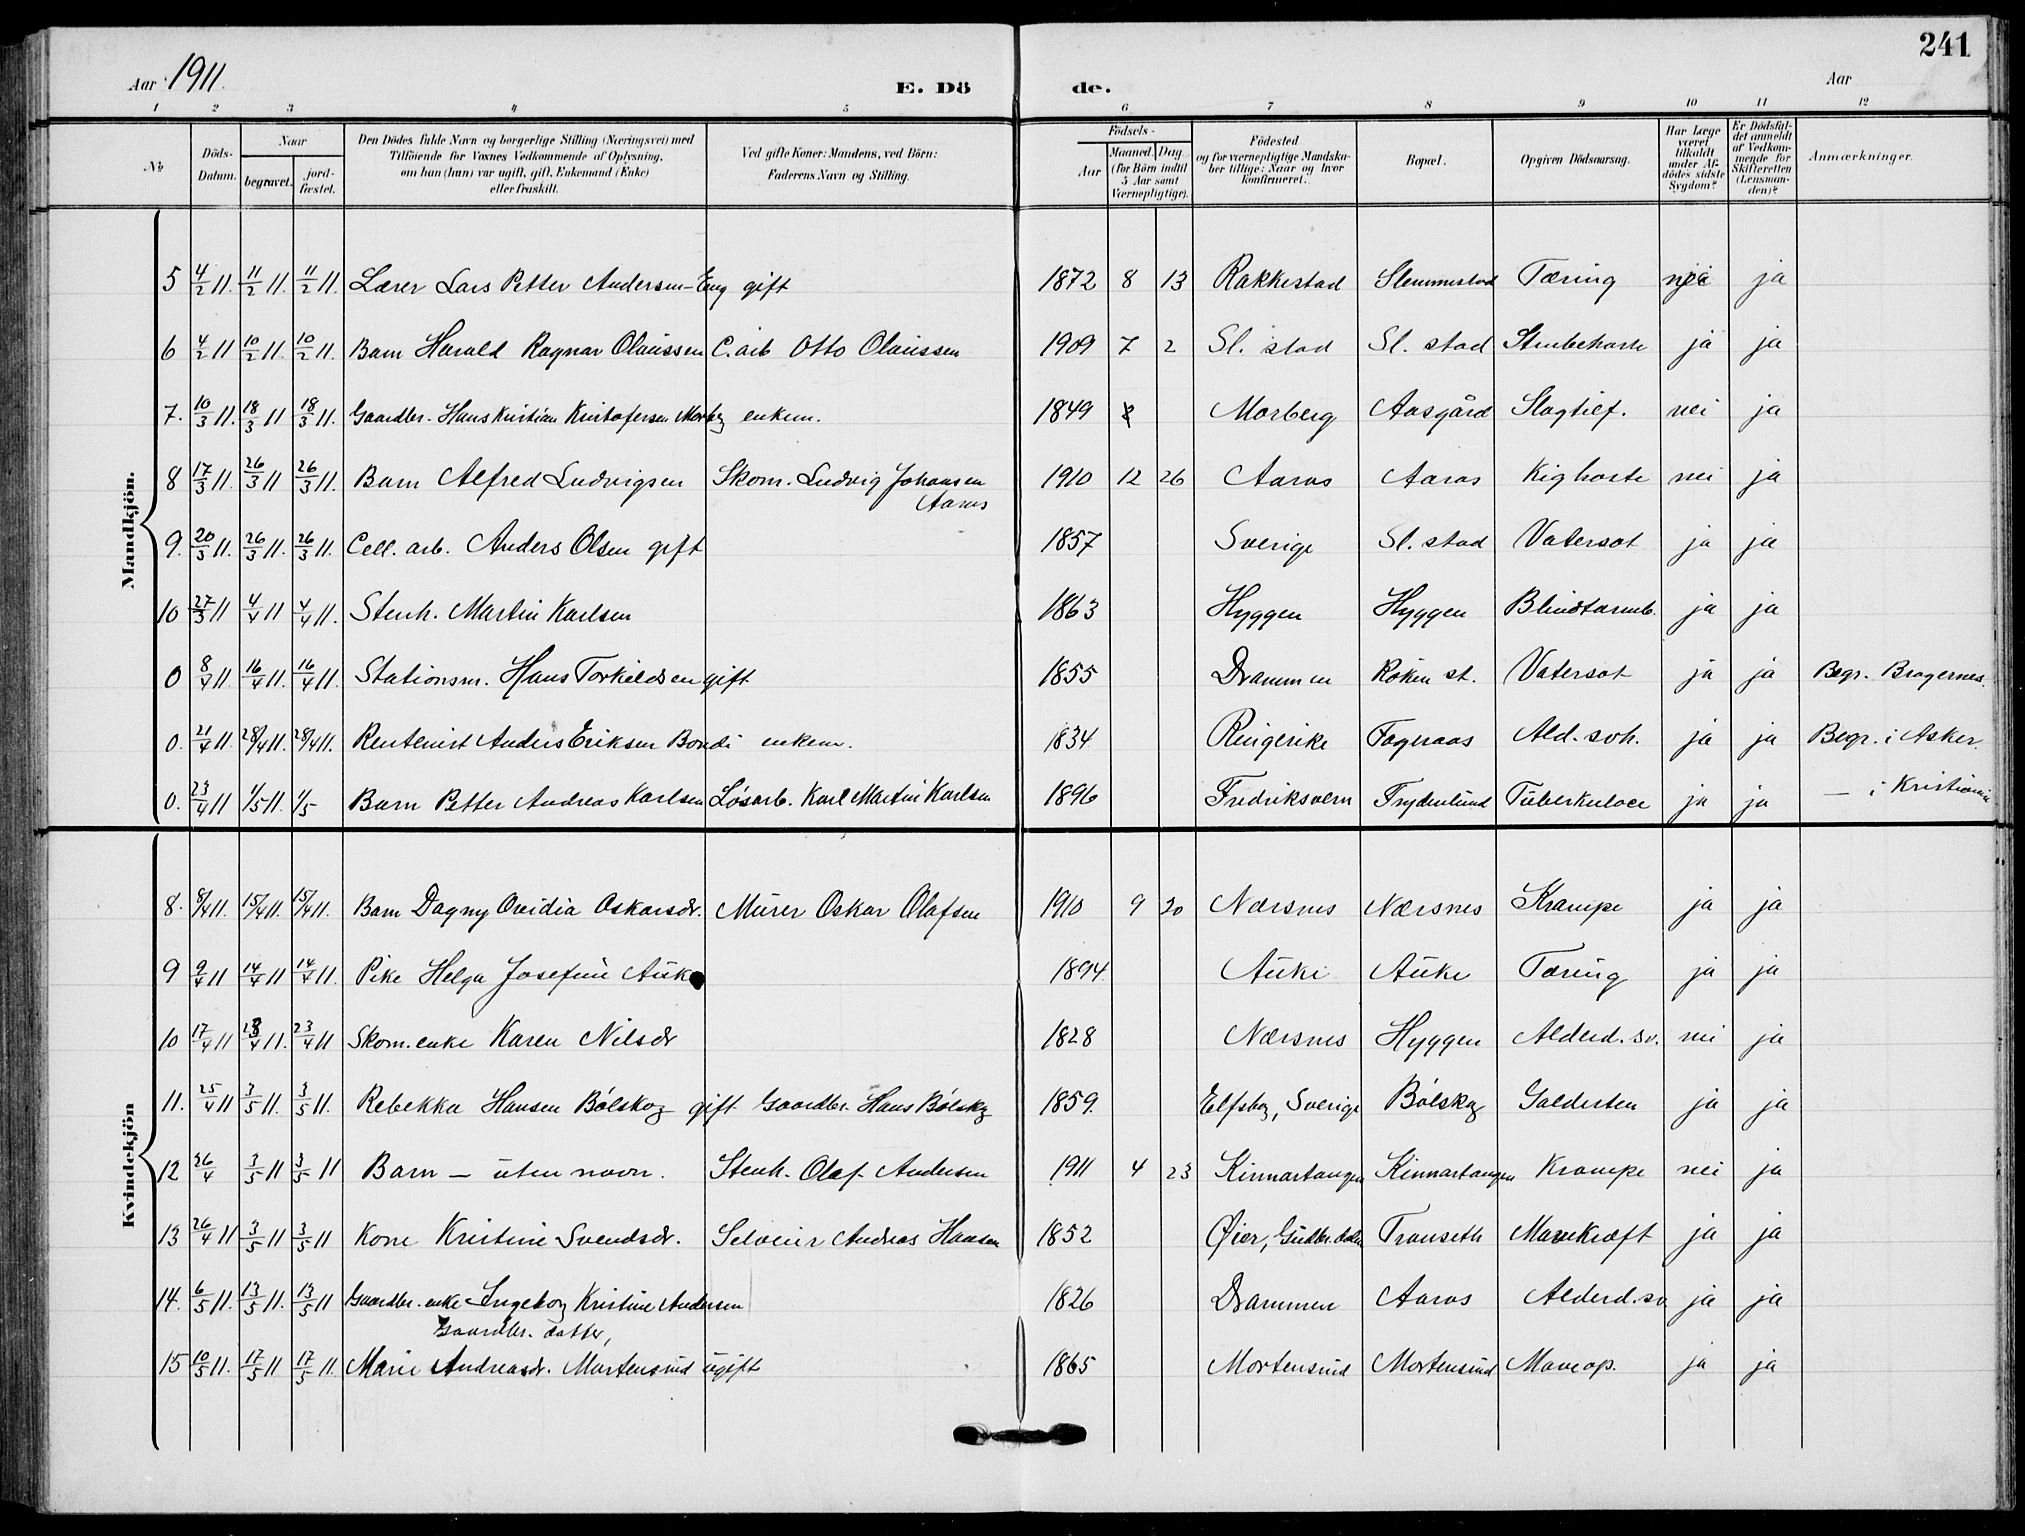 241
Aar 1911. E. Dö de. Aar
1 2 3 4 5 6 7 8 9 10 11 12
No Döds-Datum. Naar begravet. jord-fæstet. Den Dödes fulde Navn og borgerlige Stilling (Næringsvei) med Tilföiende for Voxnes Vedkommende af Oplysning, om han (hun) var ugift, gift, Enkemand (Enke) eller fraskilt. Ved gifte Koner: Mandens, ved Börn: Faderens Navn og Stilling. Födsels- Aar Maaned. Dag. (for Börn indtil 5 Aar samt Værnepligtige). Födested og for værnepligtige Mandskaber tillige: Naar og hvor konfirmeret. Bopæl. Opgiven Dödsaarsag. Har Læge været tilkaldt under Afdödes sidste Sygdom? Er Dödsfaldet anmeldt af Vedkommende for Skifteretten (Lensmanden)? Anmærkninger.
Mandkjön.
5 4/2 11. 11/2 11. 11/2 11. Lærer Lars Petter Andersen-Eng gift 1872 8 13 Rakkestad Slemmestad Tæring nei ja
6 4/2 11 10/2 11. 10/2 11. Barn Harald Ragnar Olaussen C. arb Otto Olaussen 1909 7 2 Sl. stad Sl. stad Strubehoste ja ja
7. 10/3 11. 18/3 11 18/3 11. Gaardbr. Hans Kristian Kristofersen Morberg enkem. 1849 Morberg Aasgård Slagtilf. nei ja
8 17/3 11. 26/3 11 26/3 11. Barn Alfred Ludvigsen Skom. Ludvig Johansen 1910 12 26 Aaros Aaros Kighoste nei ja
Aaros
9. 20/3 11. 26/3 11. 26/3 11. Cell. arb. Anders Olsen gift 1857 Sverige Sl. stad Vatersot ja ja
10 27/3 11 4/4 11 4/4 11. Stenh. Martin Karlsen 1863 Hyggen Hyggen Blindtarmb. ja ja
0 8/4 11. 16/4 11. 16/4 11. Stationsm. Hans Torkildsen gift 1855 Drammen Röken st. Vatersot ja ja Begr. Bragernes.
0. 21/4 11. 28/4 11. 28/4 11. Rentenist Anders Eriksen Bondi enkem. 1834 Ringerike Fagraas Ald. svh. ja ja Begr. i Asker.
0. 23/4 11 1/5 11. 1/5 Barn Petter Andreas Karlsen Løsarb. Karl Martin Karlsen 1896 Fredriksværn Frydenlund Tuberkuloce ja ja — i Kristiania
Kvindekjön
8. 8/4 11. 15/4 11. 15/4 11. Barn Dagny Ovidia Oskarsdr. Murer Oskar Olafsen 1910 9 20 Nærsnes Nærsnes Krampe ja ja
9 9/4 11 14/4 11 14/4 11. Pike Helga Josefine Auke 1894. Auke Auke Tæring ja ja
10 17/4 11 23/4 11. 23/4 11 Skom. enke Karen Nilsdr 1828 Nærsnes Hyggen Alderd. sv. nei ja
11. 25/4 11 3/5 11. 3/5 11. Rebekka Hansen Bölskog gift Gaardbr. Hans Bölskg 1859. Elfsbog, Sverige Bölskog Galdesten ja ja
12 26/4 3/5 11 3/5 11 Barn — uten navn. Stenh. Olaf Andersen 1911 4 23 Kinnartangen Kinnartangen Krampe nei ja
13 26/4 11 3/5 11 3/5 11 Kone Kristine Svendsdr. Selveier Andreas Hansen 1852 Øier, Gudbr. dalen Transeth Mavekræft ja ja
14. 6/5 11. 13/5 11. 13/5 11 Gaardbr. enke Ingeborg Kristine Andersen 1826 Drammen Aaros Alderd. sv ja ja
Gaardbr. datter,
15 10/5 11. 17/5 11 17/5 11. Marie Andreasdr. Mortensrud ugift 1865 Mortensrud Mortensrud Maveop. ja ja